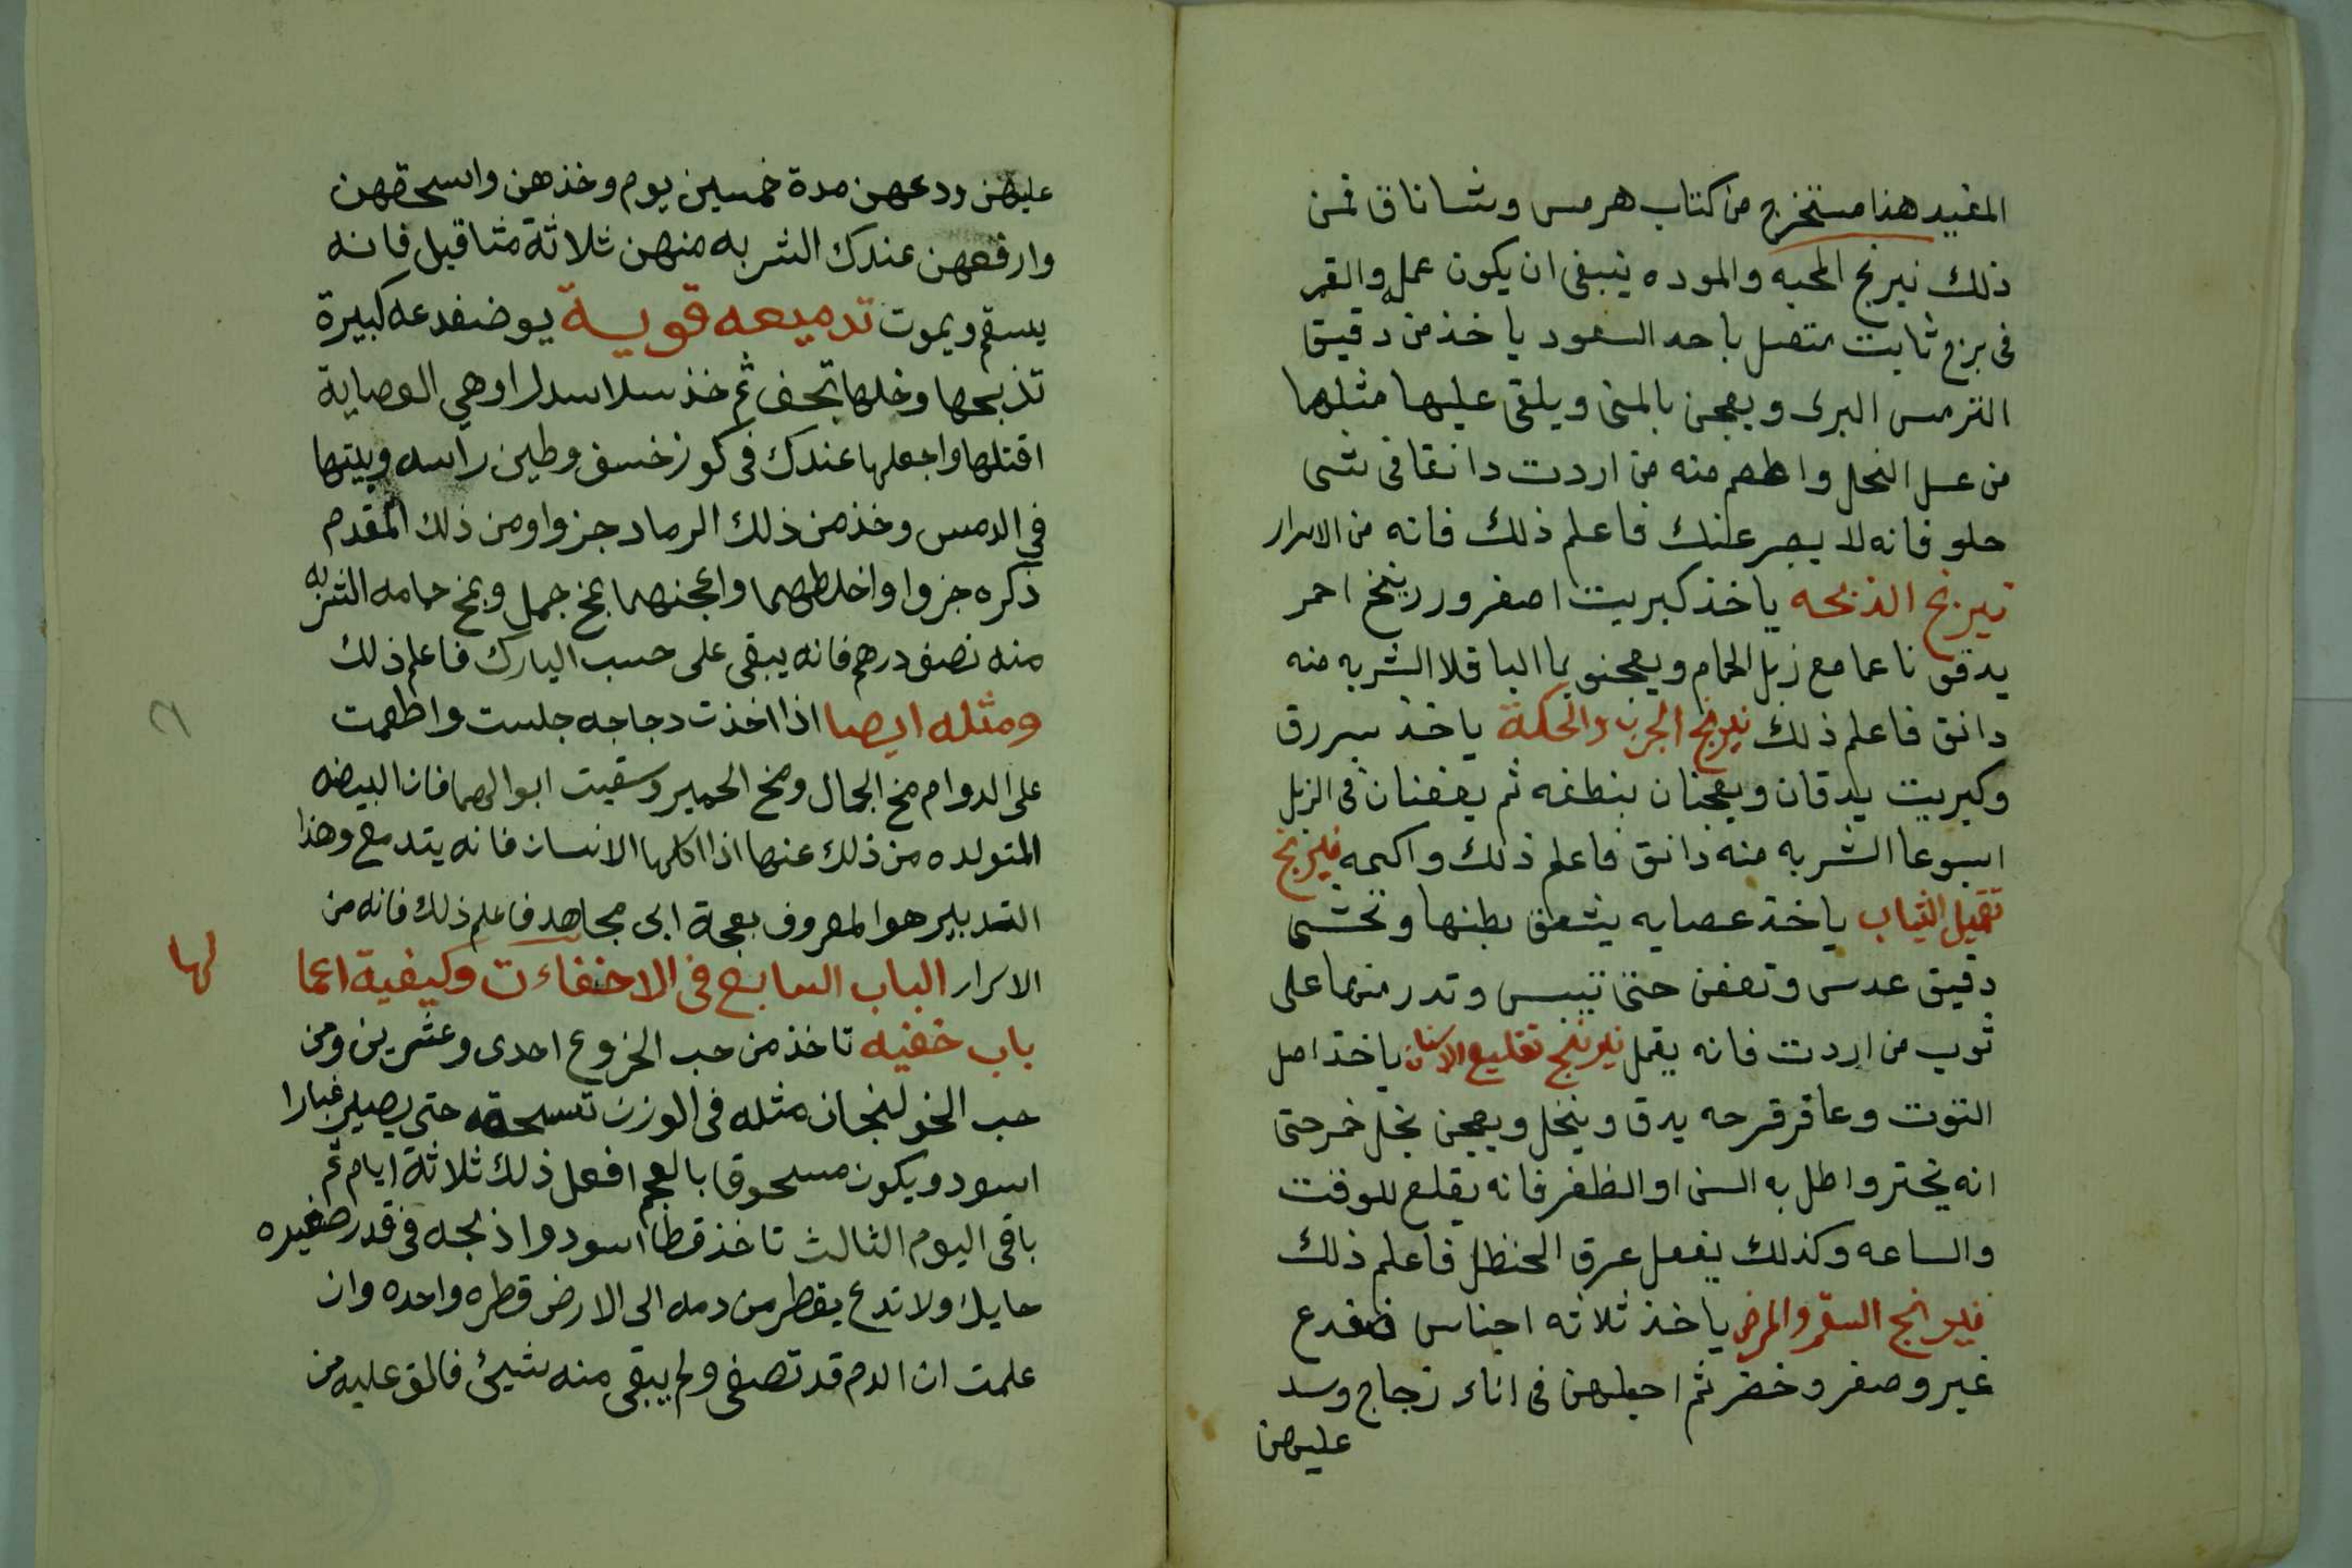 المفيد هذا مستخرج من كتاب هرمس وشاناق فمن
ذلك نيرنج المحبه والموده ينبغى ان يكون عمله والقمر
فى برج ثابت متصل باحد السعود ياخذ من دقيق
الترمس البرى ويعجن بالمنى ويلقى عليها مثلها
من عسل النحل واطعم منه من اردت دانقا فى شى
حلو فانه لا يصبر عنك فاعلم ذلك فانه من الاسرار
نيرنج الذبحه ياخذ كبريت اصفر وزرنيخ احمر
يدقو ناعما مع زبل الحمام ويعجنو بما الباقلا الشربه منه
دانق فاعلم ذلك نيرنج الجرب والحكة ياخذ
وكبريت يدقان ويعجنان بنطفه ثم يعفنان فى الزبل
اسبوعا الشربه منه دانق فاعلم ذلك واكتمه نيرنج
تقميل الثياب ياخذ عصايه يشق بطنها وتحشى
دقيق عدس وتعفن حتى تيبس وتدر منها على
ثوب من اردت فانه يقمل نيرنج تقليع الاسنان ياخذ اصل
التوت وعاقر قرحه يدق وينخل ويعجن بخل خمر حتى
انه يختر واطل به السن او الظفر فانه يقلع للوقت
والساعه وكذلك يفعل عرق الحنظل فاعلم ذلك
نيرانج السقم والمرض ياخذ ثلاثه اجناس ضفدع
غبر وصفر وخضر ثم اجعلهن فى اناء زجاج وسد
عليهن
عليهن ودعهن مدة خمسين يوم وخذهن واسحقهن
وارفعهن عندك الشربه منهن ثلاثة مثاقيل فانه
يسقم ويموت تدميعه قوية يو ضفدعه كبيرة
تذبحها وخلها تجف ثم خذ سلاسدلرا وهي العصاية
اقتلها واجعلها عندك فى كوز خسف وطين راسه وبيتها
في الدمس وخذ من ذلك الرماد جزوا ومن ذلك المقدم
ذكره جزوا واخلطهما واعجنهما بمخ جمل وبمخ حمامه الشربه
منه نصف درهم فانه يبقى على حسب اليارك فاعلم ذلك
ومثله ايصا اذا اخذت دجاجه جلست واطعمت
على الدوام مخ الجمال ومخ الحمير وسقيت ابوالهما فان البيضه
المتولده من ذلك عنها اذا اكلها الانسان فانه يتدمع وهذا
التدبير هو المعروف بعجة ابى مجاهد فاعلم ذلك فانه من
الاسرار الباب السابع فى الاخفاءت وكيفية اعما
لها
باب خفيه تاخذ من حب الخروع احدى وعشرين ومن
حب الخولنجان مثله فى الوزن تسحقه حتى يصير غبارا
اسود ويكون مسحوقا بالعجم افعل ذلك ثلاثة ايام ثم
باقى اليوم الثالث تاخذ قطا اسود واذبحه فى قدر صغيره
حايك ولا تدع يقطر من دمه الى الارض قطره واحده وان
علمت ان الدم قد تصفى ولم يبقى منه شيئ فالق عليه من